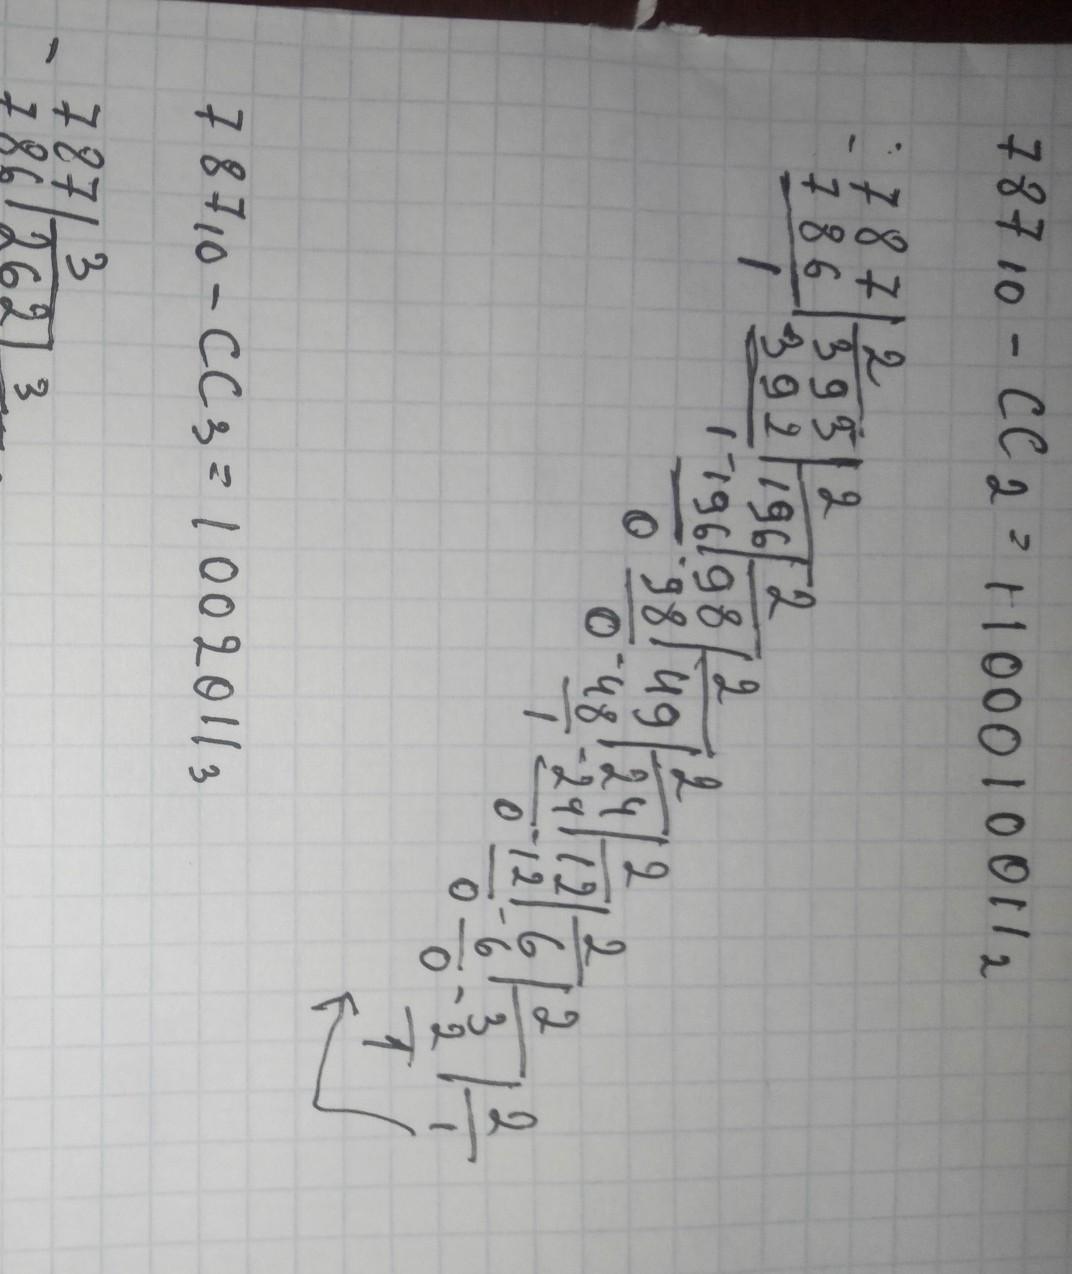 787 10 - CC 2 = 1100010011 2
- 787 | 2
786 | 393 | 2
1 392 | 196 | 2
1 - 196 | 98 | 2
0 - 98 | 49 | 2
0 - 48 | 24 | 2
1 - 24 | 12 | 2
0 - 12 | 6 | 2
0 - 6 | 3 | 2
0 - 2 | 1
1
787 10 - CC 3 = 1002011 3
- 787 | 3
786 | 262 | 3